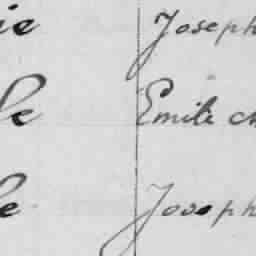 ie Joseph
le Emile
le Joseph